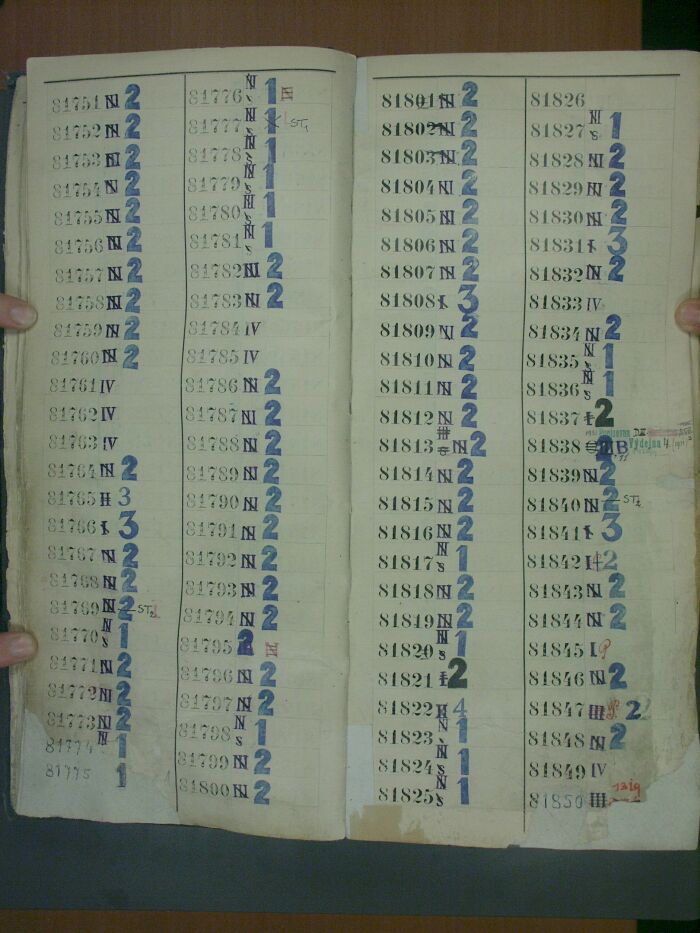 81751 N 2
81752 N 2
81753 N 2
81754 N 2
81755 N 2
81756 N 2
81757 N 2
81758 N 2
81759 N 2
81760 N 2
81761 IV
81762 IV
81763 IV
81764 N 2
81765 H 3
81766 I 3
81767 N 2
81768 N 2
81769 N 2
81770 N s 1
81771 N 2
81772 N 2
81773 N 2
81774 N 1
81775 1
81776 N s 1
81777 N s 1 ST1
81778 N s 1
81779 N s 1
81780 N s 1
81781 N s 1
81782 N 2
81783 N 2
81784 IV
81785 IV
81786 N 2
81787 N 2
81788 N 2
81789 N 2
81790 N 2
81791 N 2
81792 N 2
81793 N 2
81794 N 2
81795 2
81796 N 2
81797 N 2
81798 N s 1
81799 N 2
81800 N 2
81801 N 2
81802 N 2
81803 N 2
81804 N 2
81805 N 2
81806 N 2
81807 N 2
81808 I 3
81809 N 2
81810 N 2
81811 N 2
81812 N 2
81813 N 2
81814 N 2
81815 N 2
81816 N 2
81817 N s 1
81818 N 2
81819 N 2
81820 N s 1
81821 I 2
81822 H 4
81823 N s 1
81824 N s 1
81825 N s 1
81826
81827 N s 1
81828 N 2
81829 N 2
81830 N 2
81831 I 3
81832 N 2
81833 IV
81834 N 2
81835 N s 1
81836 N s 1
81837 2
81838 B Výdejna 4
81839 N 2
81840 N 2
81841 I 3
81842 2
81843 N 2
81844 N 2
81845 I
81846 N 2
81847 2
81848 N 2
81849 IV
81850